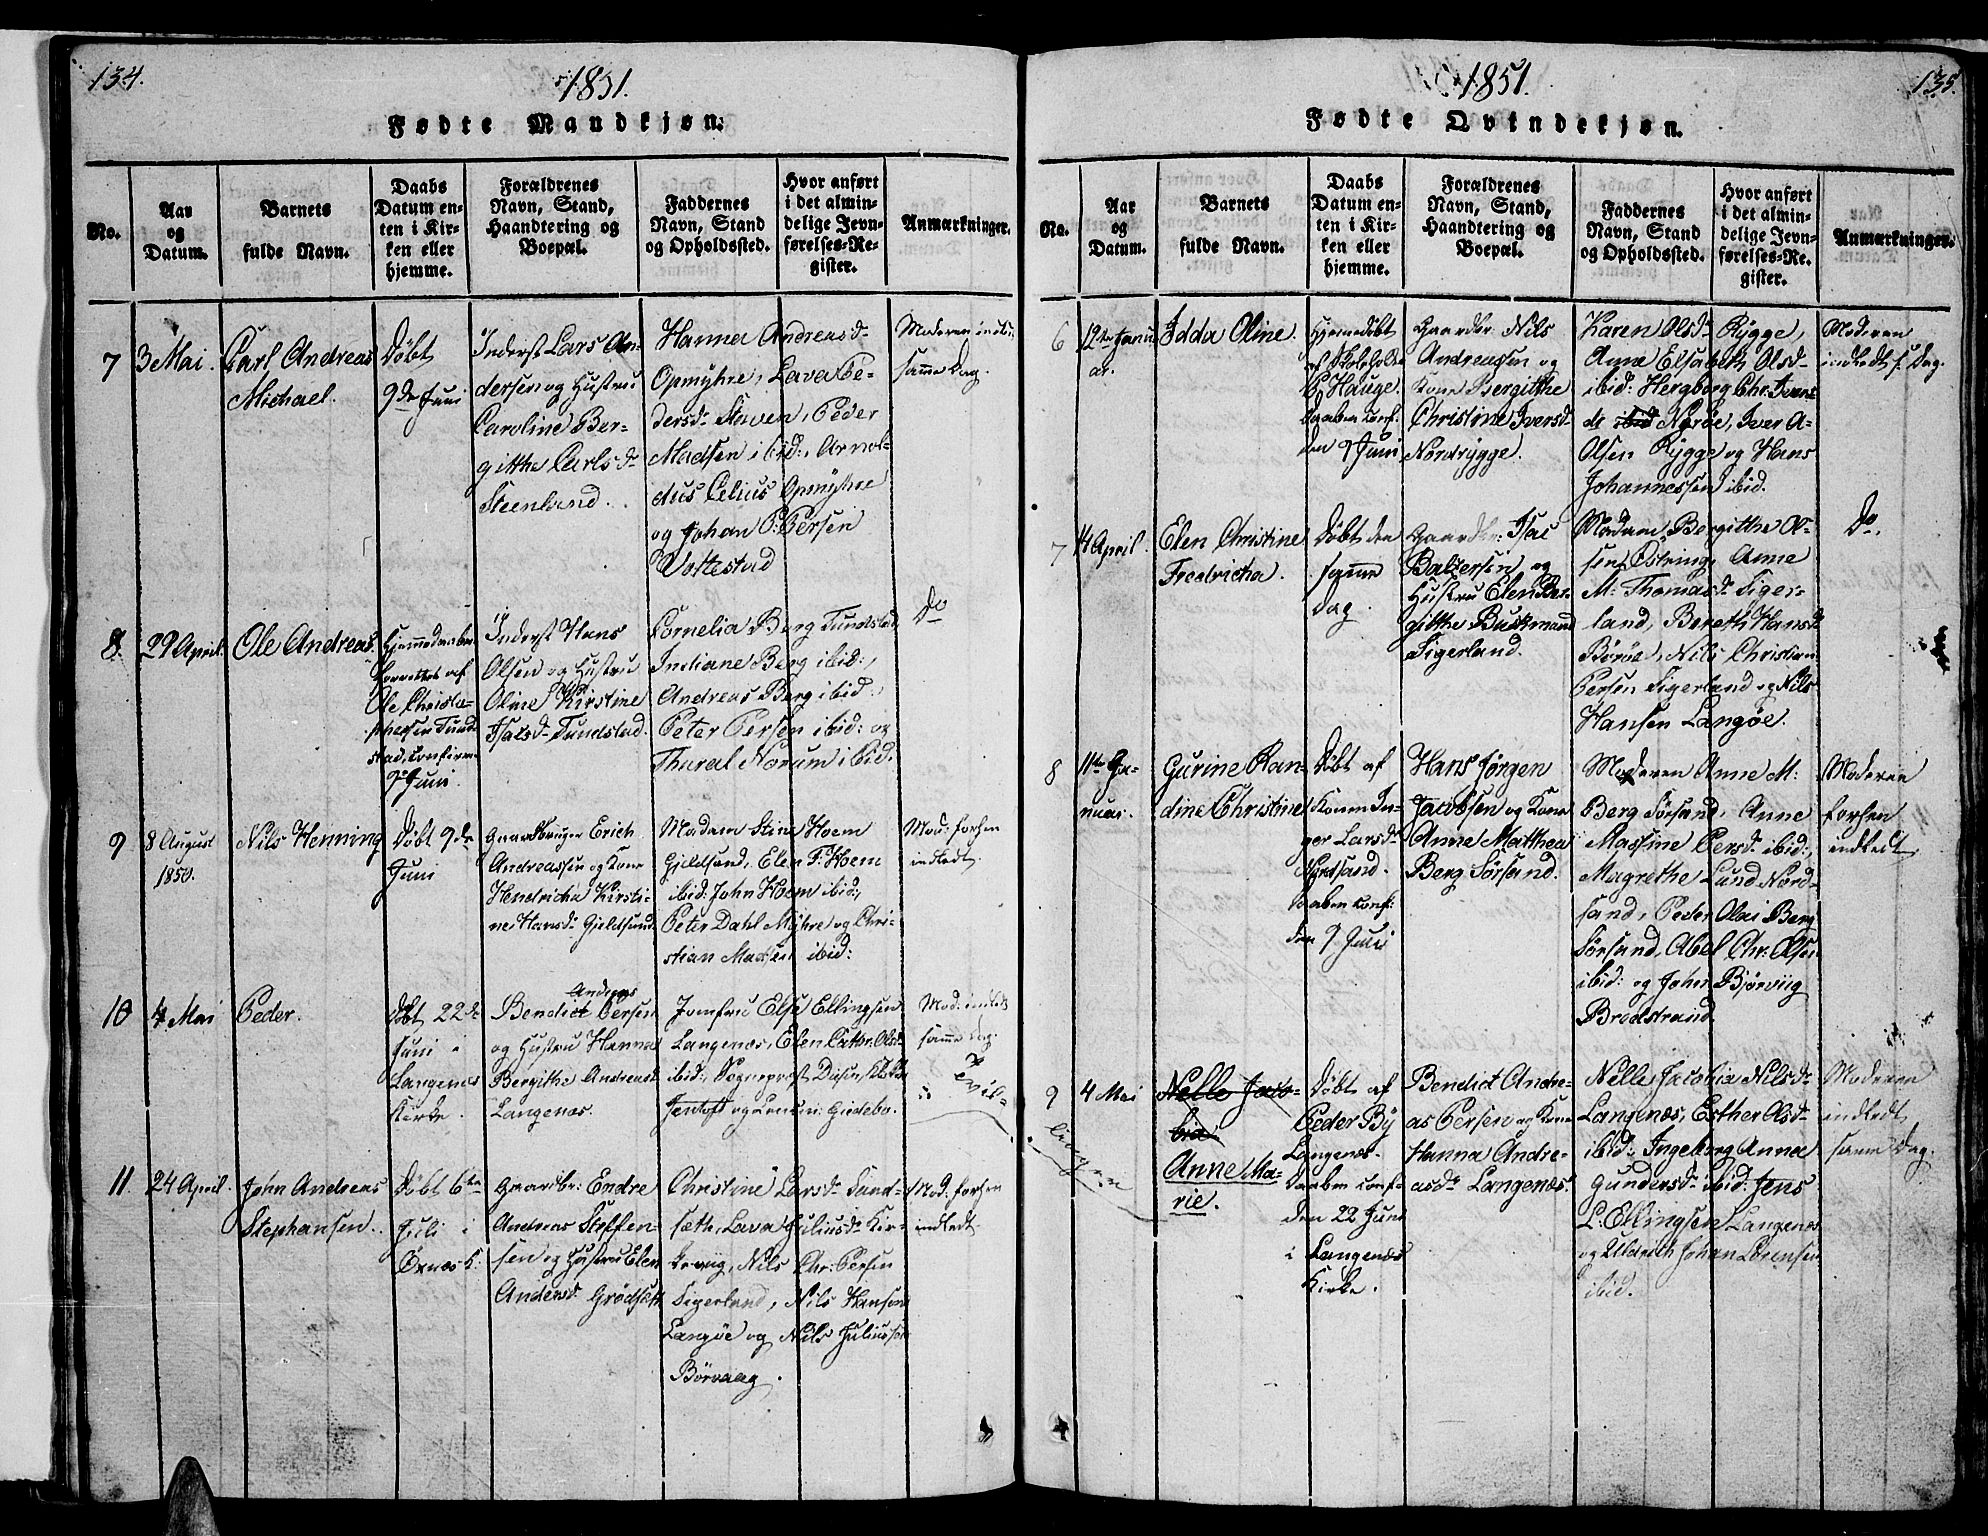 134.
1851.
Fødte Mandkjøn.
No.
Aar
og
Datum.
Barnets
fulde Navn.
Daabs
Datum en-
ten i Kir-
ken eller
hjemme.
Forældrenes
Navn, Stand,
Haandtering og
Boepæl.
Faddernes
Navn, Stand
og Opholdssted.
Hvor anført
i det almin-
delige Jevn-
førelses-Re-
gister.
Anmærkninger.
7
3 Mai.
Carl Andreas
Michael.
Døbt
9de Juni
Inderst Lars An-
dersen og Hustru
Caroline Ber-
gitthe Carlsdr
Steenland.
Hanna Andreasdr
Opmyhre, Lava Pe-
dersdr Staven, Peder
Madsen ibid:, Arnol-
dus Celius Opmyhre
og Johan P: Persen
Vottestad
Moderen indl.
samme Dag.
8
29 April.
Ole Andreas.
Hjemmedaaben
forrettet af
Ole Christo-
phersen Tund-
stad, confirm.
9de Juni.
Inderst Hans
Olsen og Hustru
Oline Kirstine
Isaksdr Tundstad.
Cornelia Berg Tundstad,
Indiane Berg ibid:,
Andreas Berg ibid:,
Peter Persen ibid: og
Thural Norum ibid.
Do
9
8 August
1850.
Nils Henning
Døbt 9de
Juni
Gaardbruger Erich
Andreassen og Kone
Hendricha Kirsti-
ne Hansdr Gjeldsund
Madam Stin Hoem
Gjeldsand, Elen F: Hoem
ibid: John Hoem ibid:,
Peter Dahl Myhre og Chri-
stian Madsen ibid:
Mod: forhen
indledt.
10
4 Mai
Peder.
døbt 22de
Juni i
Langenæs
Kirke.
Andreas
Bendict Persen
og Hustru Hanna
Bergithe Andreasdr
Langenæs.
Jomfru Else Ellingsen
Langenæs, Elen Cathr. Olsdr
ibid:, Sogneprest Disen, Klokker
Jentoft og Lenun. Gudebo.
Mod: indledt
samme Dag.
Tvil-
lingen
11
24 April.
John Andreas
Stephansen.
Døbt 6te
Juli i
Øxnæs K:
Gaardbr: Endre
Andreas Steffen-
sen og Hustru Elen
Andersdr Grødsæth
Christine Larsdr Sand-
sæth, Lava Juliusdr Kir-
keviig, Nils Chr: Persen
Tigerland, Nils Hansen
Langøe og Nils Juliussen
Børvaag.
Mod: forhen
indledt.
135.
1851.
Fødte Qvindekjøn.
No.
Aar
og
Datum.
Barnets
fulde Navn.
Daabs
Datum en-
ten i Kir-
ken eller
hjemme.
Forældrenes
Navn, Stand,
Haandtering og
Boepæl.
Faddernes
Navn, Stand
og Opholdssted.
Hvor anført
i det almin-
delige Jevn-
førelses-Re-
gister.
Anmærkninger.
6
12te Janu-
ar.
Idda Oline.
Hjemmedøbt
af Skoleholder
P. Hauge.
Daaben conf:
den 9 Juni
Gaardbr: Nils
Andreassen og
Kone Bergitthe
Christine Iversdr
Nordrygge.
Karen Olsdr Rygge,
Anne Elsabeth Olsdr
ibid: Hergberg Chr. Ivers-
dr ibid Nyrøe, Iver A-
Olsen Rygge og Hans
Johannessen ibid.
Moderen
indledt s. Dag.
7
14 April.
Elen Christine
Fredricha.
Døbt den
samme
dag.
Gaardbr: Isac
Baltersen og
Hustru Elen Ber-
gitthe Buckmand
Tigerland.
Madam Bergitthe Ol-
sen Østring, Anne
M: Thomasdr Tiger-
land, Bereth Hansdr
Børøe, Nils Christian
Persen Tigerland og Nils
Hansen Langøe.
Do.
8
11te Ja-
nuar.
Gurine Ran-
dine Christine
Døbt af
Konen In-
ger Larsdr
Nordsand.
Daaben conf:
den 9 Juni
Hans Jørgen
Jacobsen og Kone
Anne Matthea
Berg Sørsand.
Moderen Anne M:
Berg Sørsand, Anne
Massine Persdr ibid:,
Magrethe Lund Nord-
sand, Peder Olai Berg
Sørsand, Abel Chr: Olsen
ibid: og John Bjørviig
Breidstrand.
Moderen
forhen
indledt
9
4 Mai
Nelle Jaco-
bia
Anne Ma-
rie.
Døbt af
Peder By
Langenæs.
Daaben conf.
den 22 Juni
i Langenæs
Kirke.
Bendict Andre-
as Persen og Kone
Hanna Andre-
asdr Langenæs.
Nelle Jacobia Nilsdr
Langenæs, Esther Olsdr
ibid: Ingeborg Anna
Gundersdr ibid: Jens
L: Ellingsen Langenæs
og Uldrith Johan Lorensen
ibid.
Moderen
indledt
samme Dag.